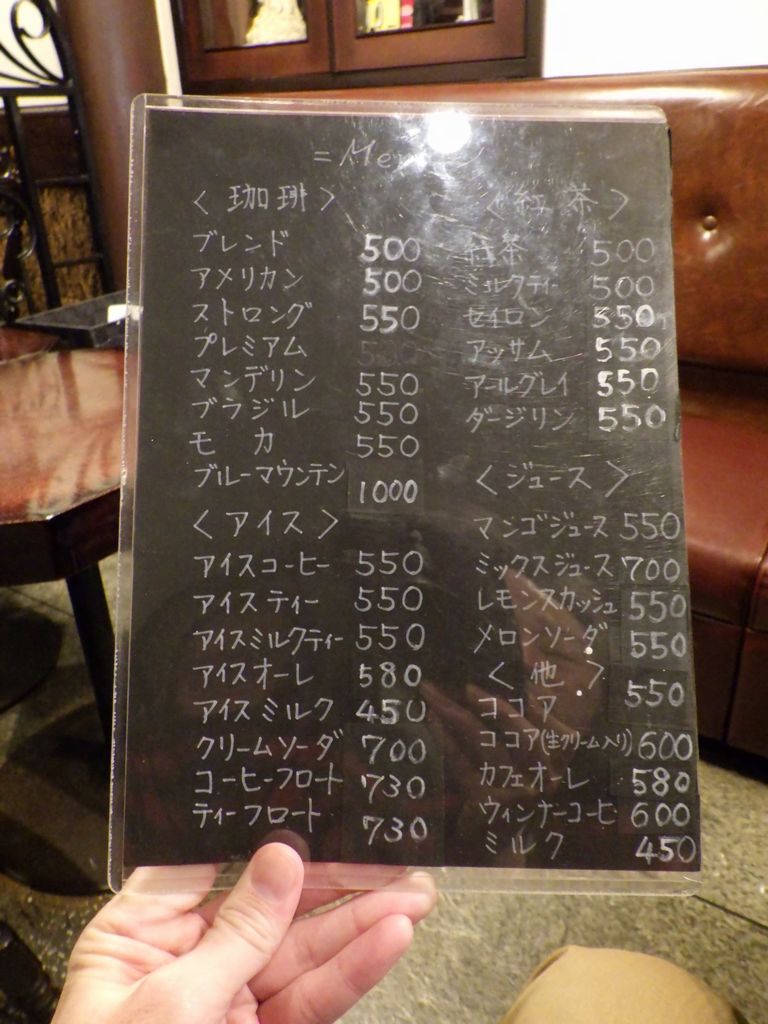 = Menu =
< 珈琲 >
ブレンド 500
アメリカン 500
ストロング 550
プレミアム
マンデリン 550
ブラジル 550
モカ 550
ブルーマウンテン 1000
< アイス >
アイスコーヒー 550
アイスティー 550
アイスミルクティー 550
アイスオーレ 580
アイスミルク 450
クリームソーダ 700
コーヒーフロート 730
ティーフロート 730
< 紅茶 >
紅茶 500
ミルクティー 500
セイロン 550
アッサム 550
アールグレイ 550
ダージリン 550
< ジュース >
マンゴジュース 550
ミックスジュース 700
レモンスカッシュ 550
メロンソーダ 550
< 他 >
ココア 550
ココア(生クリーム入り) 600
カフェオーレ 580
ウィンナーコーヒ 600
ミルク 450